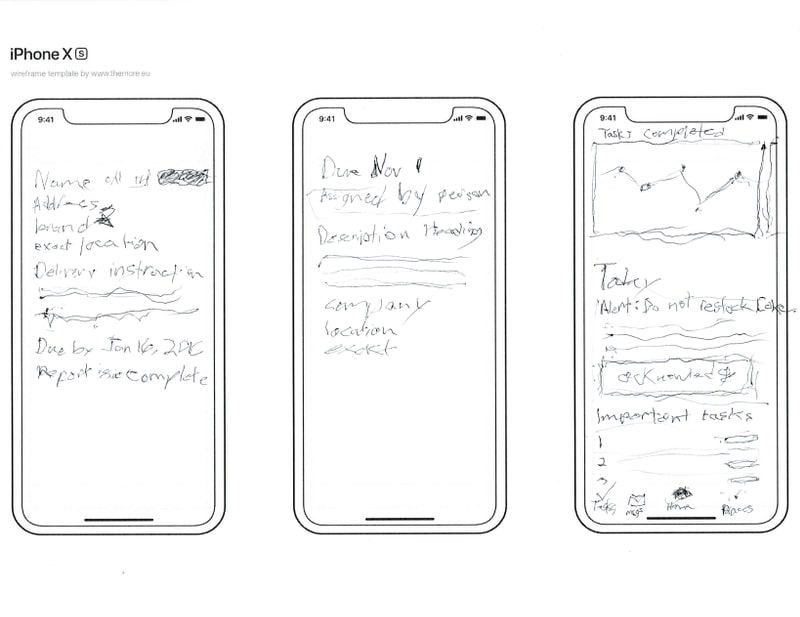 iPhone X S
wireframe template by www.themore.eu
9:41
Name all
Address
brand
exact location
Delivery instruction
Due by Jan 16, 2
Report issue complete
9:41
Due Nov 1
Assigned by person
Description Heading
company
location
exact
9:41
Tasks completed
Today
Alert: Do not restock Coke
acknowledge
Important tasks
1
2
3
Tasks
msgs
Home
Places